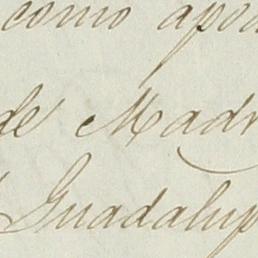 como apod
de Madr
Guadalup